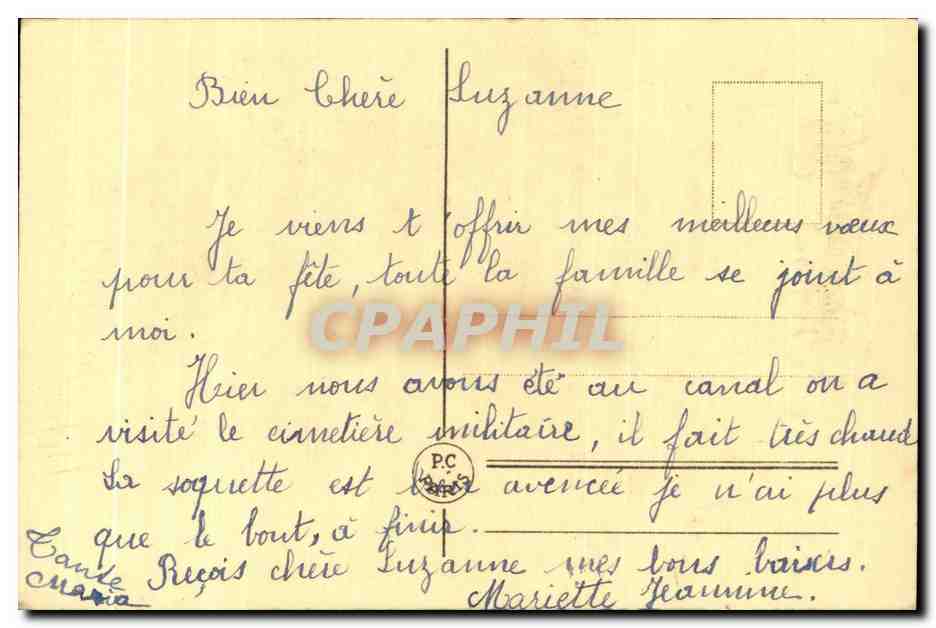 Bien Chère Suzanne
Je viens t'offrir mes meilleurs vœux
pour ta fête, toute la famille se joint à
moi.
CPAPHIL
Hier nous avons été au canal on a
visité le cimetière militaire, il fait très chaud
P.C
PARIS
La soquette est bien avencée je n'ai plus
que le bout, à finir.
Reçois chère Suzanne mes bons baisers.
Tante
Maria
Mariette Jeannine.